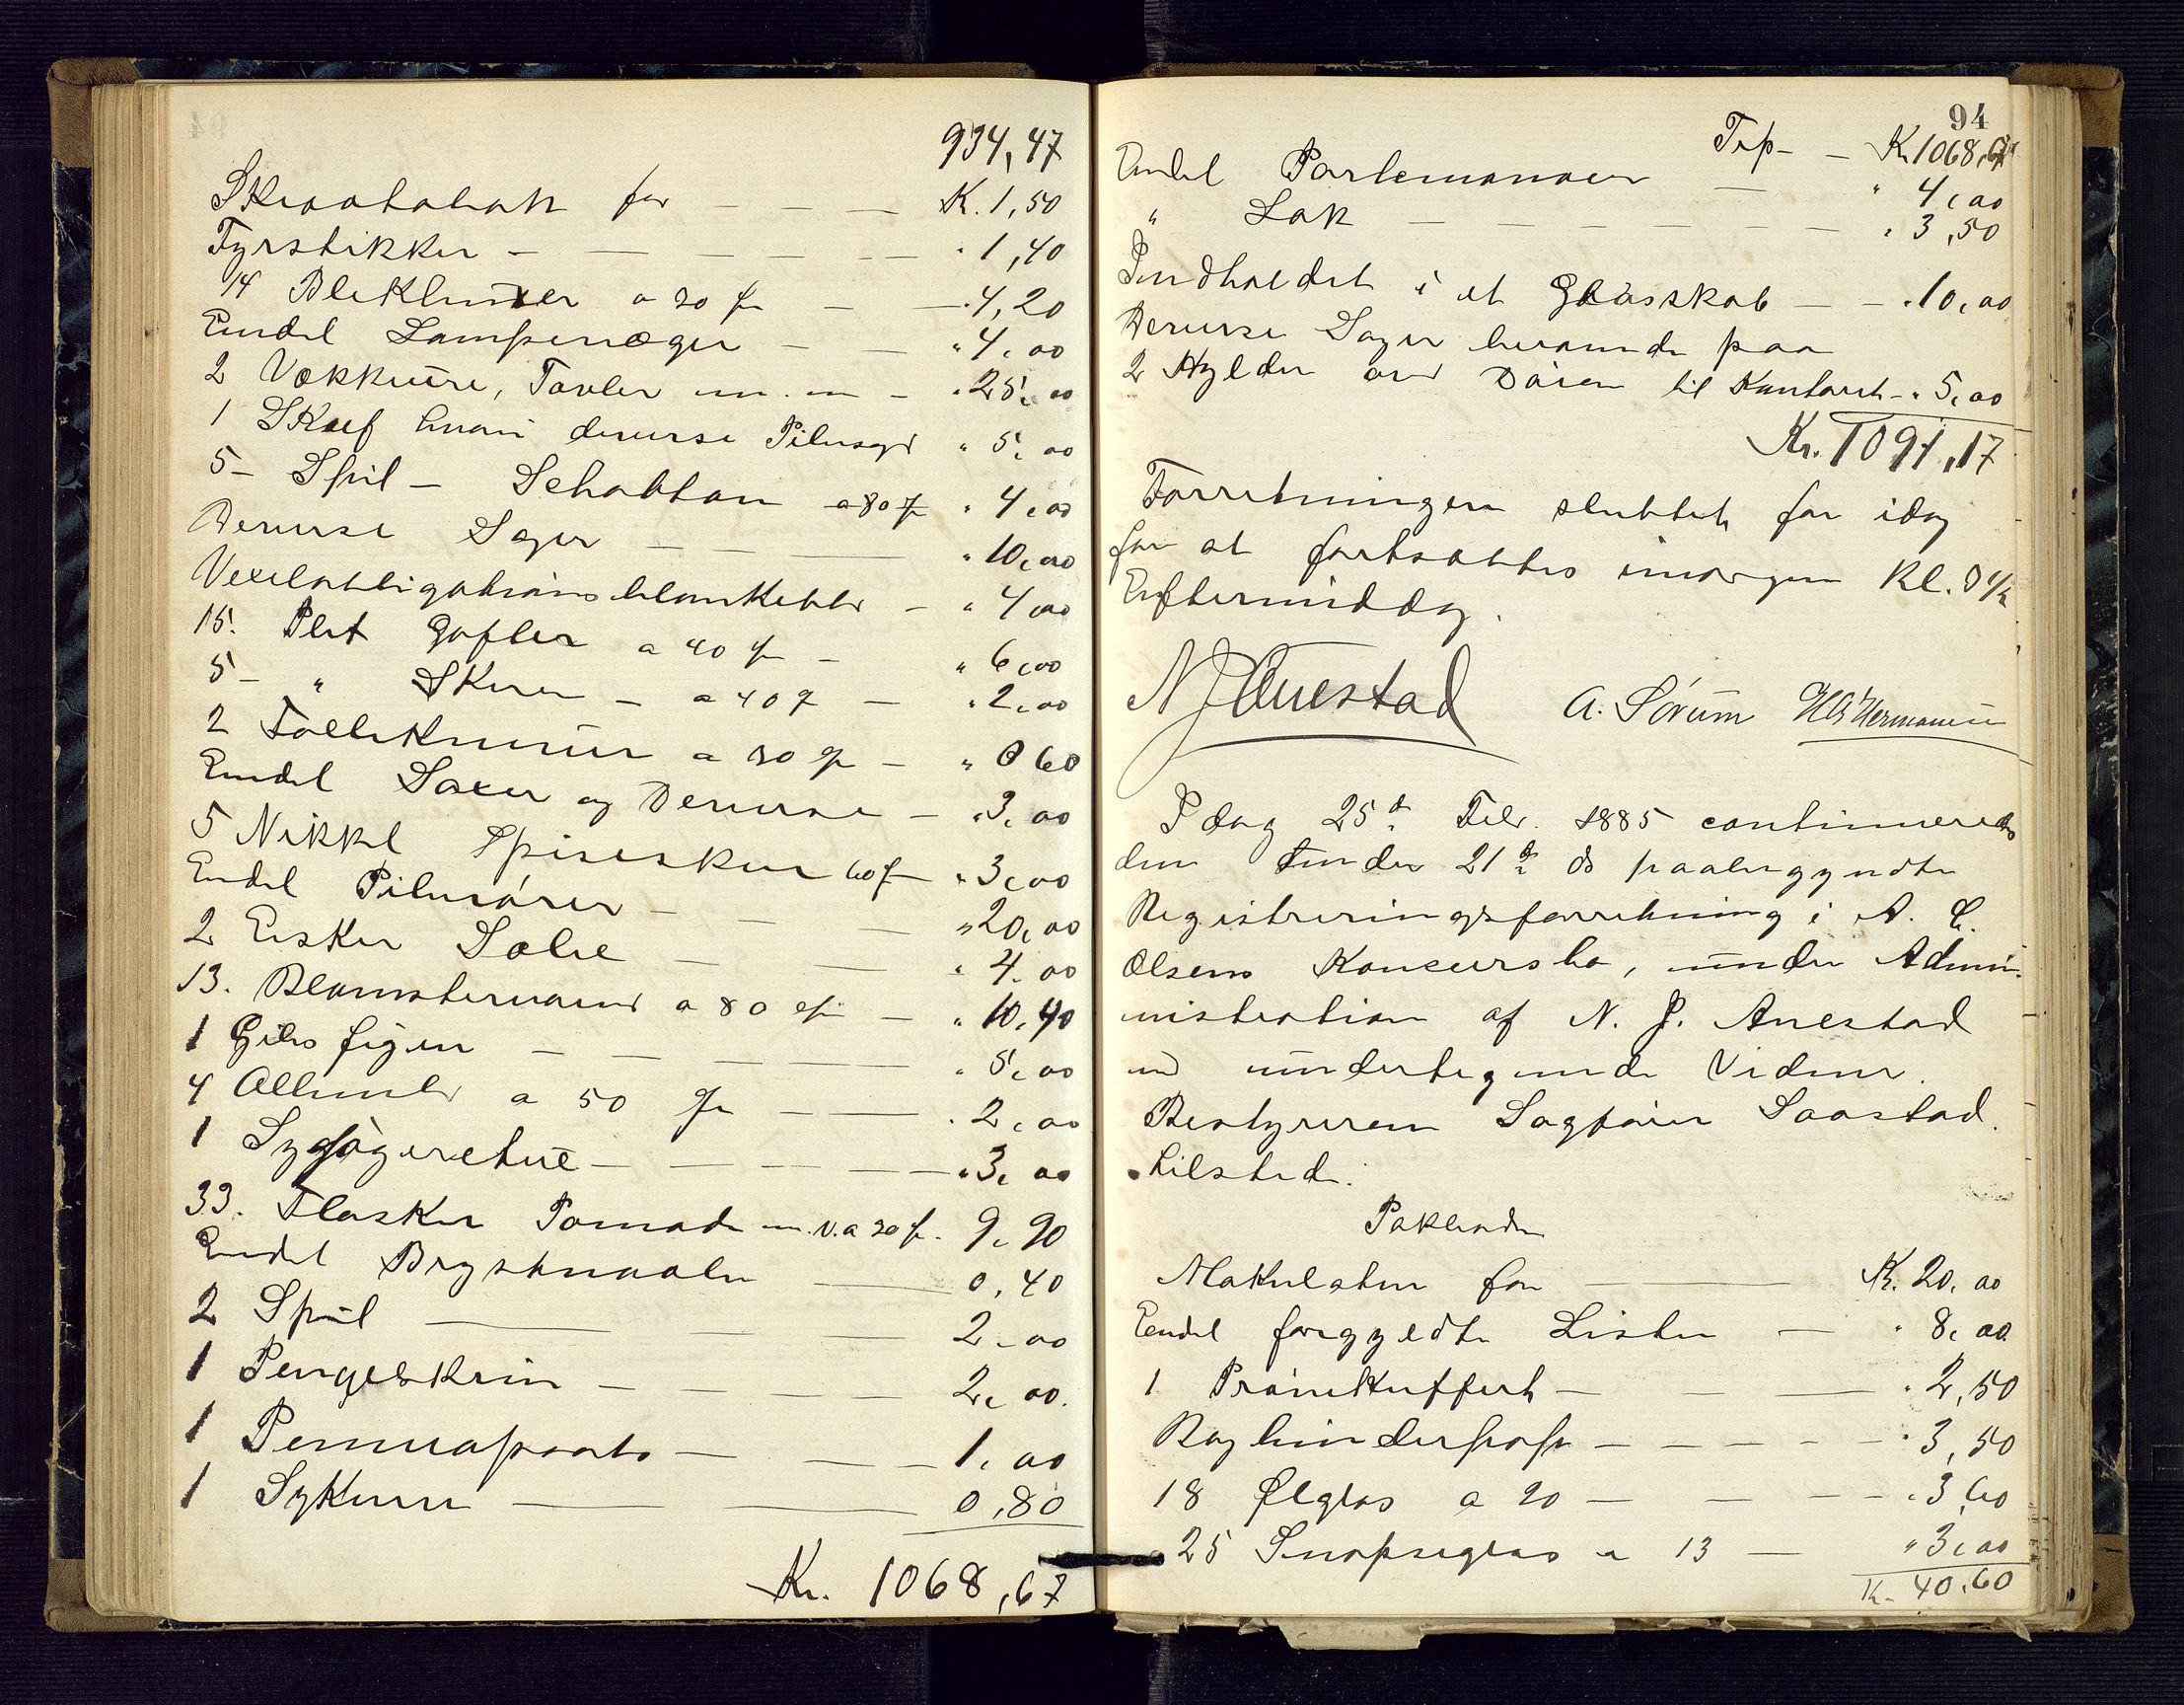 934,47
Skraatobak for — — — K. 1,50
Fyrstikker — — — " 1,40
14 Blekhuuser a 30 ør — — " 4,20
Endel Lampevæger — — " 4,00
2 Vækkeure, Tavler m. m — " 25,00
1 Skuf hvori diverse Pibesager " 5,00
5 — Spil — Schotton a 80 ør " 4,00
Diverse Sager — — " 10,00
Vexelobligationsblanketter — " 4,00
15. Plet Gafler a 40 ør — " 6,00
5 — " Skeer — a 40 ø — " 2,00
2 Follekniver a 30 ør — " 0 60
Endel Saxer og Diverse — " 3,00
5 Nikkel Spiseskeer 60 ør " 3,00
Endel Piberører — — — " 20,00
2 Esker Sæbe — — " 4,00
13. Blomstervaser a 80 ør — " 10,40
1 Gibs figur — — — — " 5,00
4 Albumer a 50 ør — — " 2,00
1 — — — " 3,00
33. Flasker Pomade m. v. a 30 ør. 9,90
Endel Brystnaale — 0,40
2 Spil — — — 2,00
1 Pengeskrin — — — — 2,00.
1 — — — 1,00
1 — — 0,80
Kr. 1068,67
94
Trp — — K. 1068,67
Endel Portemonaier — " 4,00
" Lak — — — — — — " 3,50
Indholdet i et Glasskab — — " 10,00
Diverse Sager beroende paa
2 Hylder over Døren til Kontoret — " 5,00
Kr. 1091,17
Forretningen sluttet for idag
for at fortsættes imorgen Kl. 3 1/2
Eftermiddag.
N J Anestad A. Sørum Hermansen
I dag 25d Febr. 1885 continueredes
den under 21de ds paabegyndte
Registreringsforretning i A. C.
Olsens Konkursbo, under Admi-
nistration af N. J. Anestad
med undertegnede Vidner.
Bestyreren Sagfører Saastad
tilstede.
Pakboden
Makulatur for — — K. 20,00
Endel forgyldte Lister — " 8,00
1 Prøvekuffert — — " 2,50
Bogbinderpap — — — — — " 3,50
18 Ølglas a 20 — — — — " 3,60
25 Snapseglas a 13 — " 3,00
K. 40,60